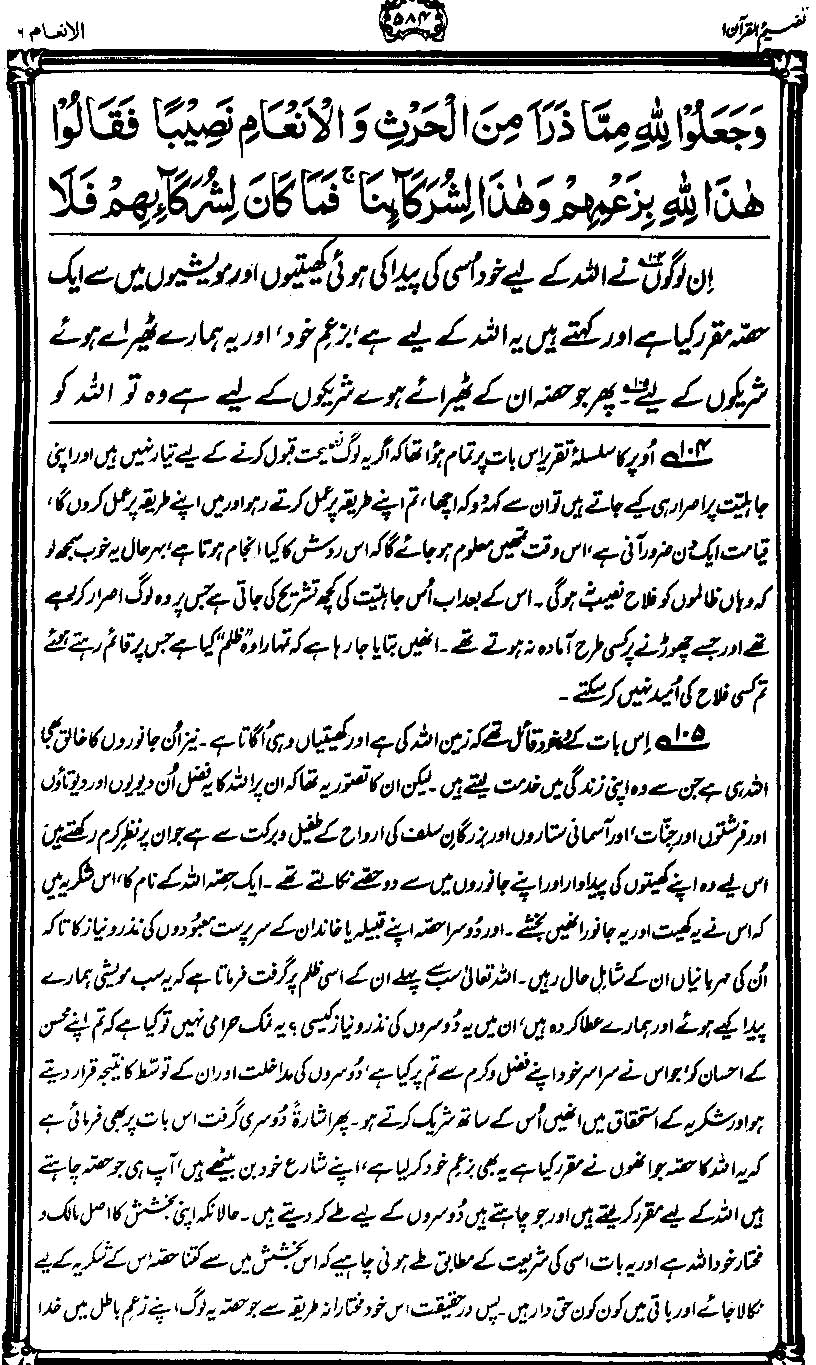 تفہیم القرآن ۱
۵۸۴
الانعام ۶
وَجَعَلُوْا لِلّٰهِ مِمَّا ذَرَاَ مِنَ الْحَرْثِ وَالْاَنْعَامِ نَصِيْبًا فَقَالُوْا
هٰذَا لِلّٰهِ بِزَعْمِهِمْ وَهٰذَا لِشُرَكَآىِٕنَا ۚ فَمَا كَانَ لِشُرَكَآىِٕهِمْ فَلَا
اِن لوگوں۱۰۴ نے اللہ کے لیے خود اُسی کی پیدا کی ہوئی کھیتیوں اور مویشیوں میں سے ایک
حصّہ مقرر کیا ہے اور کہتے ہیں یہ اللہ کے لیے ہے، بزعمِ خود، اور یہ ہمارے ٹھیرائے ہوئے
شریکوں کے لیے۱۰۵۔ پھر جو حصّہ ان کے ٹھیرائے ہوے شریکوں کے لیے ہے وہ تو اللہ کو
۱۰۴ اُوپر کا سلسلۂ تقریر اِس بات پر تمام ہؤا تھا کہ اگر یہ لوگ نصیحت قبول کرنے کے لیے تیار نہیں ہیں اور اپنی
جاہلیّت پر اصرار ہی کیے جاتے ہیں تو ان سے کہدو کہ اچھا، تم اپنے طریقہ پر عمل کرتے رہو اور میں اپنے طریقہ پر عمل کروں گا،
قیامت ایک دن ضرور آنی ہے، اس وقت تمھیں معلوم ہو جائے گا کہ اس روش کا کیا انجام ہوتا ہے، بہرحال یہ خوب سمجھ لو
کہ وہاں ظالموں کو فلاح نصیب نہ ہوگی۔ اس کے بعد اب اُس جاہلیّت کی کچھ تشریح کی جاتی ہے جس پر وہ لوگ اصرار کر رہے
تھے اور جسے چھوڑنے پر کسی طرح آمادہ نہ ہوتے تھے۔ انھیں بتایا جا رہا ہے کہ تمہارا وہ ”ظلم“ کیا ہے جس پر قائم رہتے ہوئے
تم کسی فلاح کی اُمید نہیں کر سکتے۔
۱۰۵ اِس بات کے وہ خود قائل تھے کہ زمین اللہ کی ہے اور کھیتیاں وہی اُگاتا ہے۔ نیز اُن جانوروں کا خالق بھی
اللہ ہی ہے جن سے وہ اپنی زندگی میں خدمت لیتے ہیں۔ لیکن ان کا تصوّر یہ تھا کہ ان پر اللہ کا یہ فضل اُن دیویوں اور دیوتاؤں
اور فرشتوں اور جنّات، اور آسمانی ستاروں اور بزرگانِ سلف کی ارواح کے طفیل و برکت سے ہے جو ان پر نظرِ کرم رکھتے ہیں
اس لیے وہ اپنے کھیتوں کی پیداوار اور اپنے جانوروں میں سے دو حصّے نکالتے تھے۔ ایک حصّہ اللہ کے نام کا، اس شکریہ میں
کہ اس نے یہ کھیت اور یہ جانور انھیں بخشے۔ اور دُوسرا حصّہ اپنے قبیلہ یا خاندان کے سرپرست معبُودوں کی نذر و نیاز کا تاکہ
اُن کی مہربانیاں ان کے شاملِ حال رہیں۔ اللہ تعالیٰ سب سے پہلے ان کے اسی ظلم پر گرفت فرماتا ہے کہ یہ سب مویشی ہمارے
پیدا کیے ہوئے اور ہمارے عطا کردہ ہیں، ان میں یہ دُوسروں کی نذر و نیاز کیسی؟ یہ نمک حرامی نہیں تو کیا ہے کہ تم اپنے محسن
کے احسان کو، جو اس نے سراسر خود اپنے فضل و کرم سے تم پر کیا ہے، دُوسروں کی مداخلت اور ان کے توسّط کا نتیجہ قرار دیتے
ہو اور شکریہ کے استحقاق میں انھیں اُس کے ساتھ شریک کرتے ہو۔ پھر اشارۃً دُوسری گرفت اس بات پر بھی فرمائی ہے
کہ یہ اللہ کا حصّہ جو انھوں نے مقرر کیا ہے یہ بھی بزعمِ خود کر لیا ہے، اپنے شارع خود بن بیٹھے ہیں، آپ ہی جو حصّہ چاہتے
ہیں اللہ کے لیے مقرر کر لیتے ہیں اور جو چاہتے ہیں دُوسروں کے لیے طے کر دیتے ہیں۔ حالانکہ اپنی بخشش کا اصل مالک و
مختار خود اللہ ہے اور یہ بات اسی کی شریعت کے مطابق طے ہونی چاہیے کہ اس بخشش میں سے کتنا حصّہ اس کے شکریہ کے لیے
نکالا جائے اور باقی میں کون کون حق دار ہیں۔ پس درحقیقت اس خود مختارانہ طریقہ سے جو حصّہ یہ لوگ اپنے زعمِ باطل میں خدا